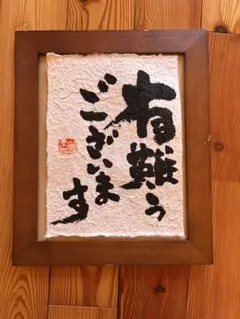 有難う
ございま
す